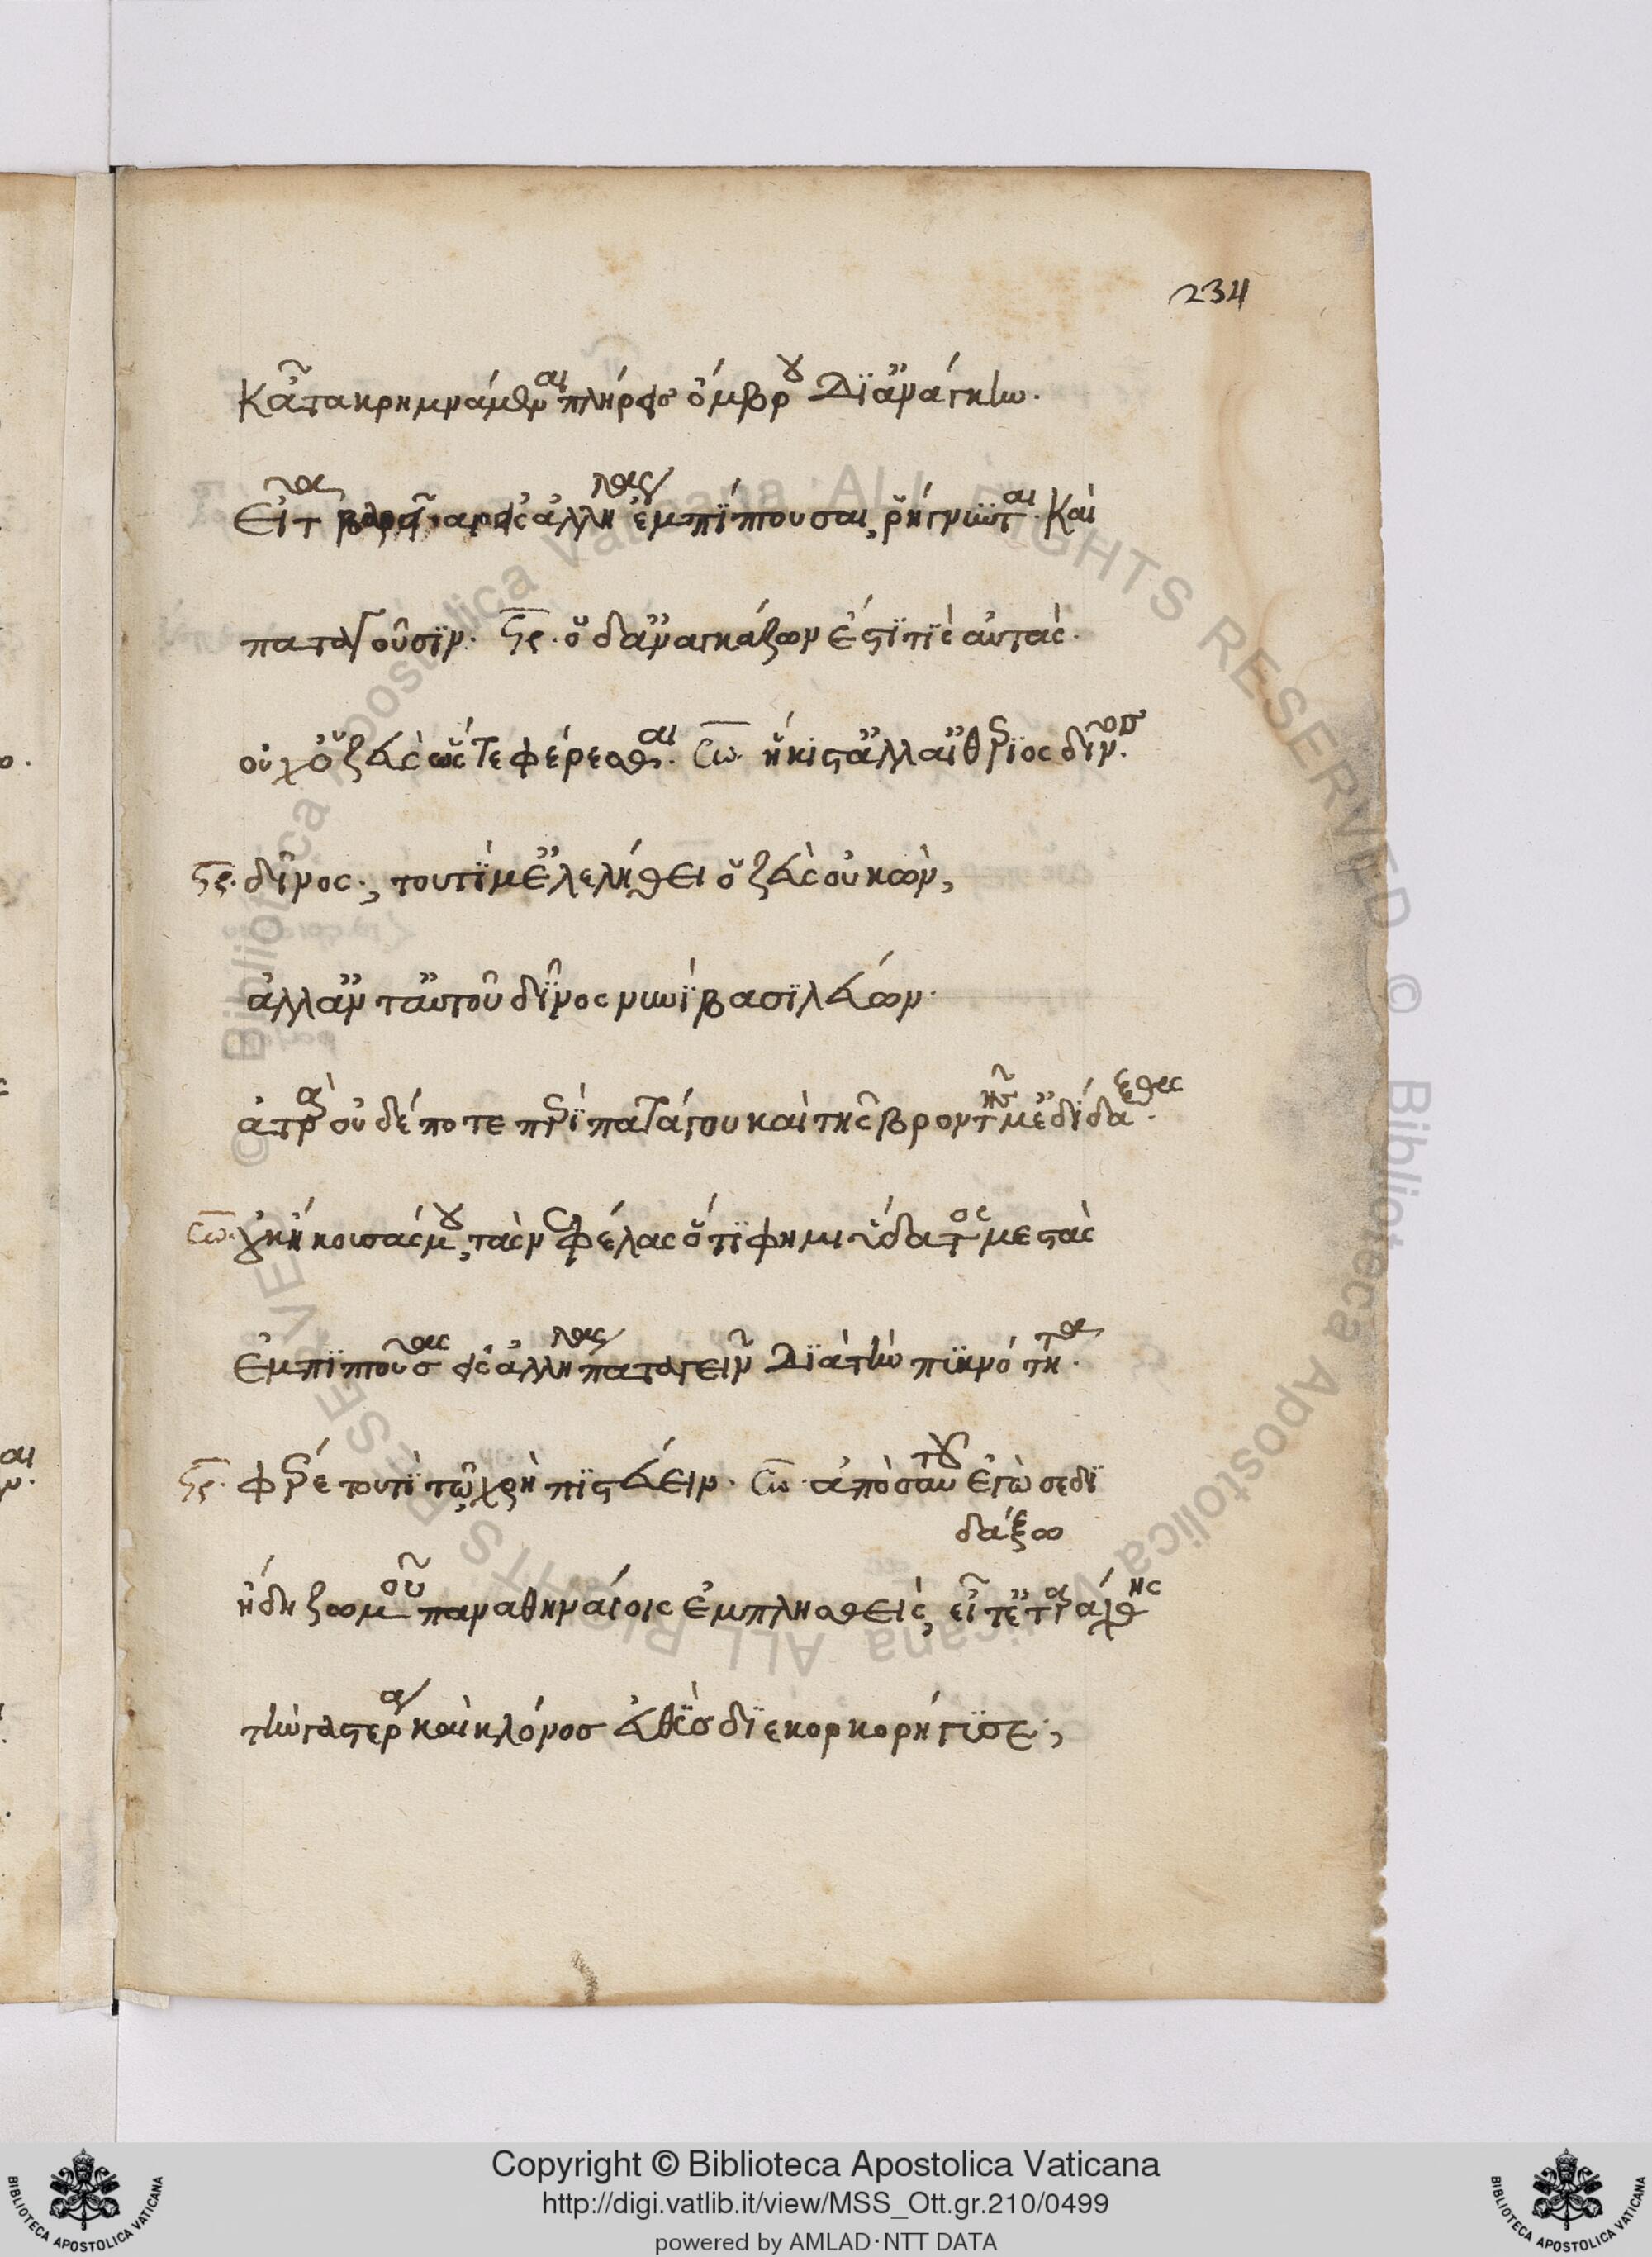 234
κᾆτα κρημνάμεναι πλήρεις ὄμβρου δι' ἀνάγκην.
εἶτα βαρεῖαι εἰς ἀλλήλας ἐμπίπτουσαι, ῥήγνυνται. καὶ
παταγοῦσιν. Στρ. ὁ δ' ἀναγκάζων ἐστὶ τίς αὐτὰς.
οὐχ ὁ ζεὺς ὥστε φέρεσθαι. Σω. ἥκιστ' ἀλλ' αἰθέριος δῖνος.
Στρ. δῖνος; τουτί μ' ἐλελήθει ὁ ζεὺς οὐκ ὢν,
ἀλλ' ἀντ' αὐτοῦ δῖνος νυνὶ βασιλεύων.
ἀτὰρ οὐδέποτε περὶ πατάγου καὶ τῆς βροντῆς μ' ἐδίδαξας.
Σω. οὐκ ἤκουσάς μου, τὰς νεφέλας ὅτι φημὶ ὕδατος μεστὰς
ἐμπιπτούσας εἰς ἀλλήλας παταγεῖν διὰ τὴν πυκνότητα.
Στρ. φέρε τουτὶ τῷ χρὴ πιστεύειν. Σω. ἀπὸ σαυτοῦ ἐγώ σε δι
δάξω
ἤδη ζωμοῦ παναθηναίοις ἐμπλησθεὶς, εἶτ' ἐταράχθης
τὴν γαστέρα καὶ κλόνος εὐθὺς διεκορκορήγισε;
Copyright © Biblioteca Apostolica Vaticana
http://digi.vatlib.it/view/MSS_Ott.gr.210/0499
powered by AMLAD·NTT DATA